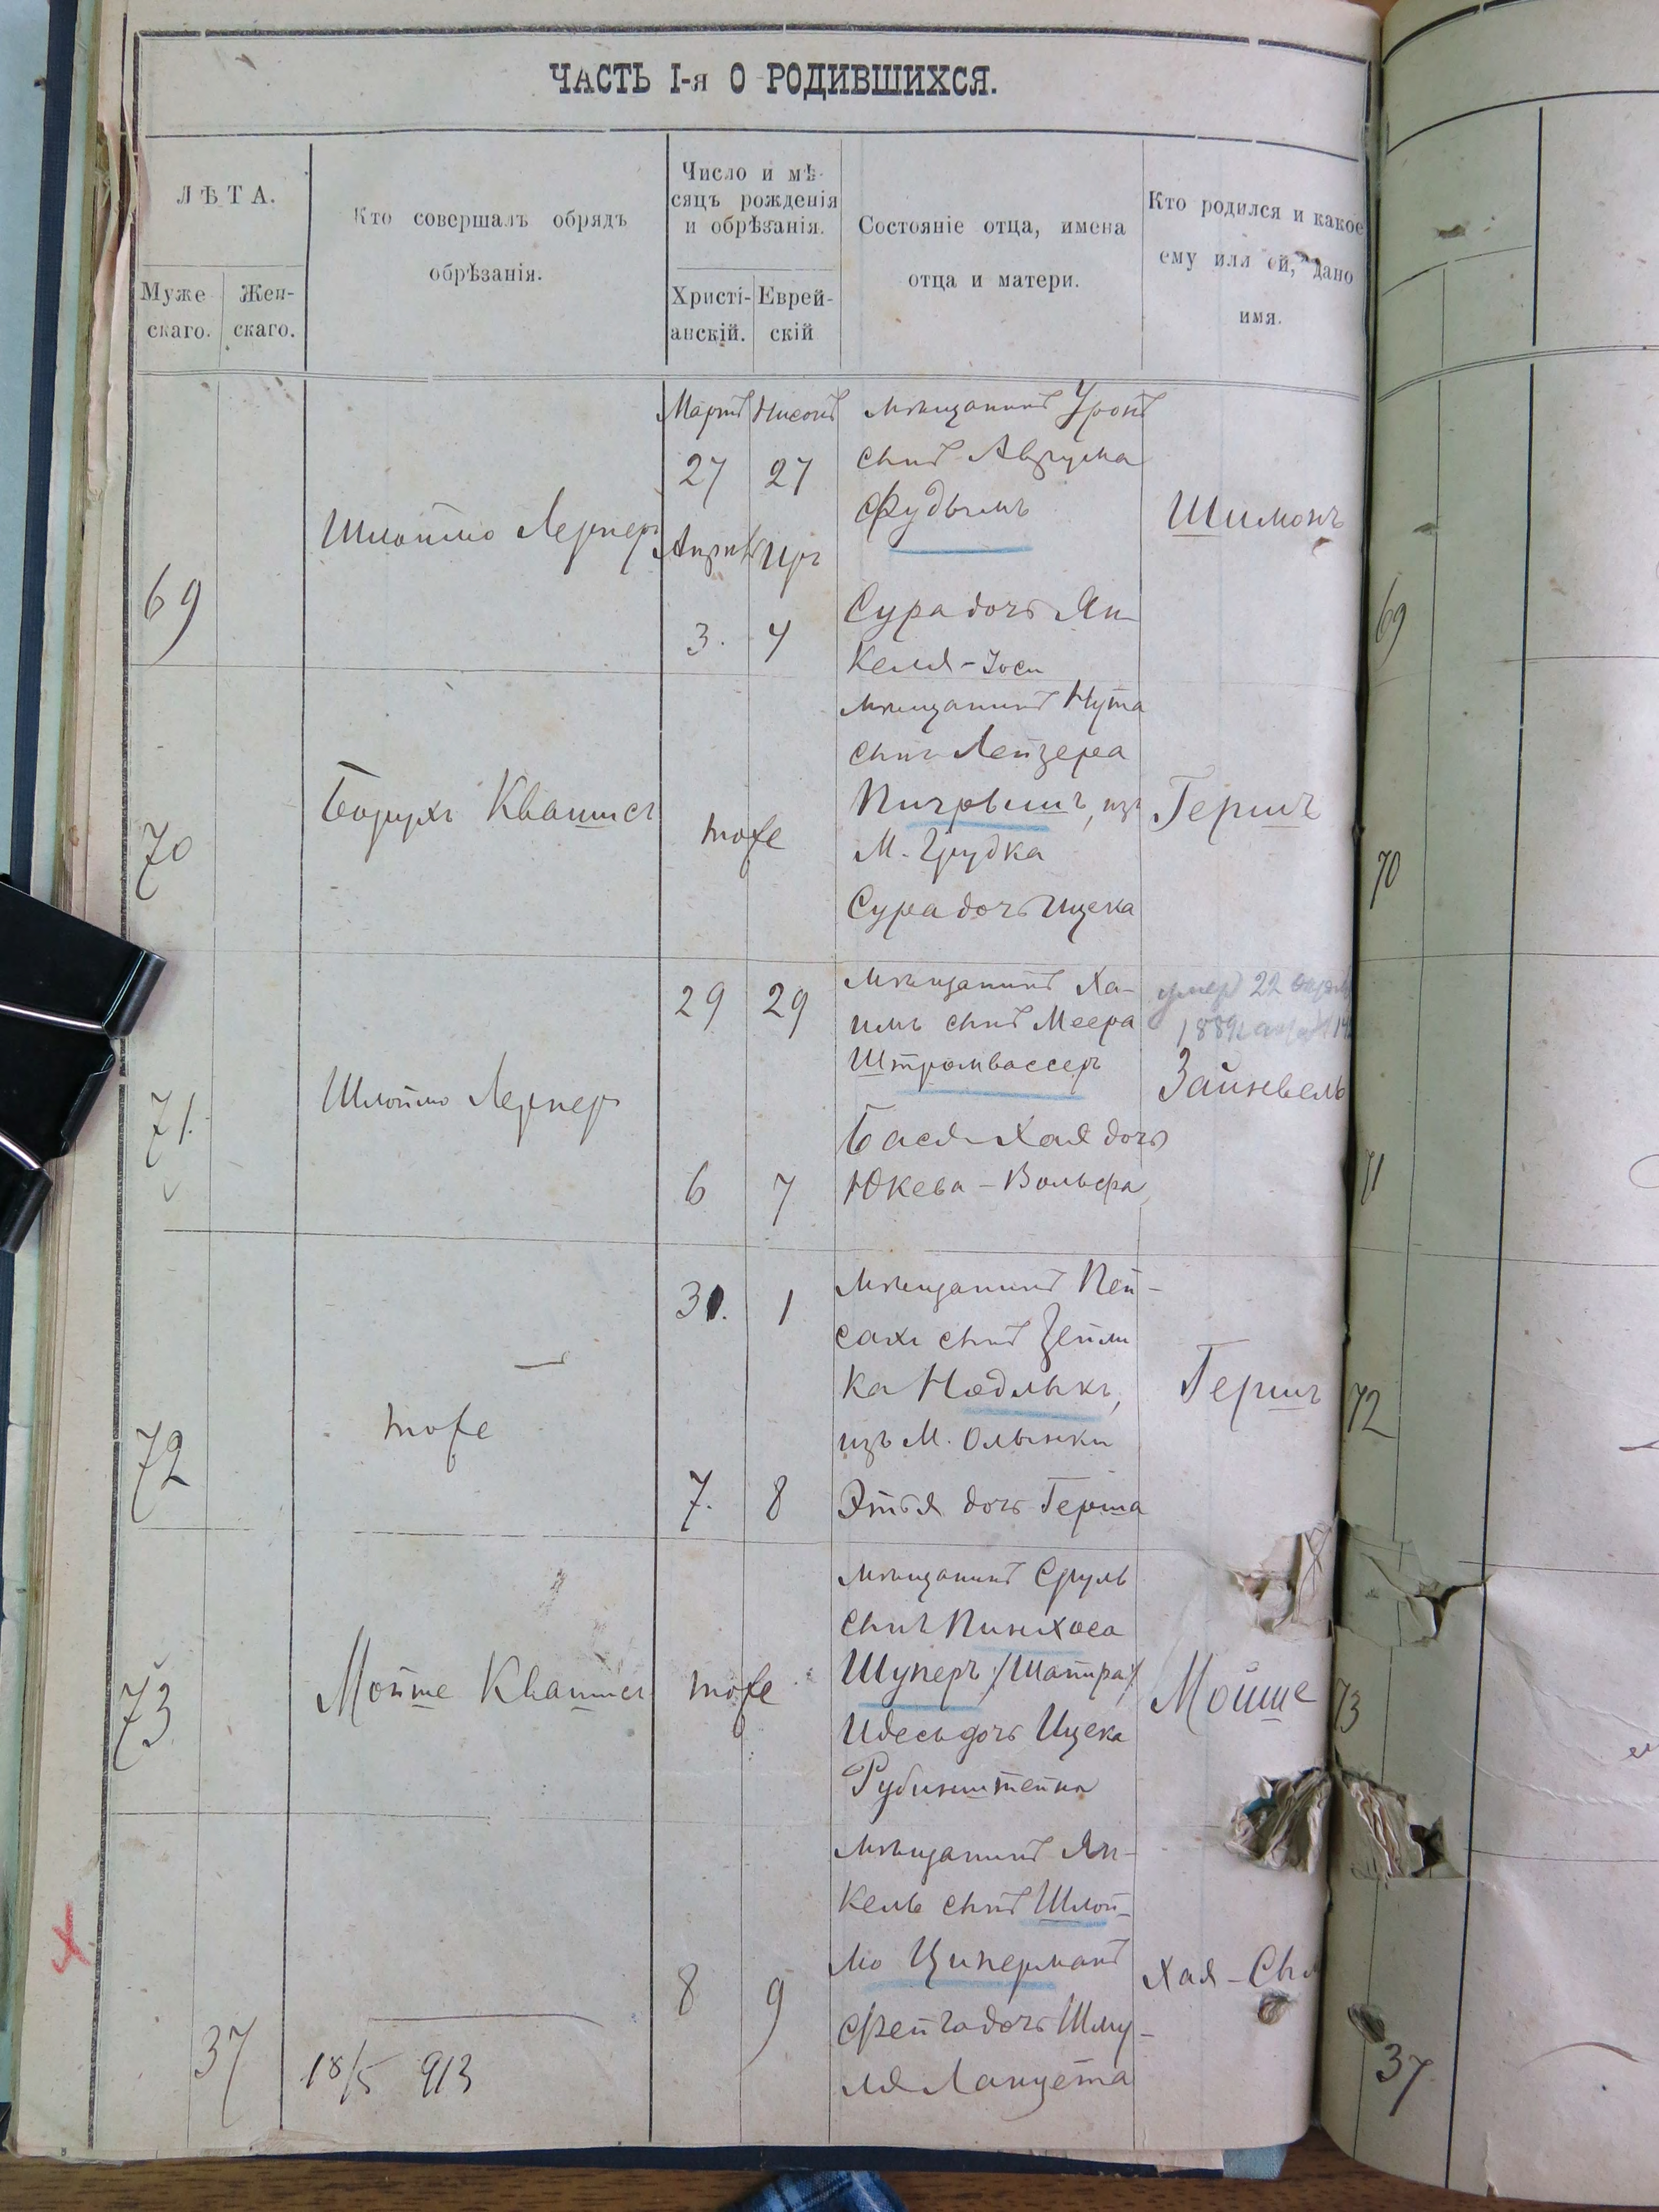 ЧАСТЬ I-я О РОДИВШИХСЯ.
ЛѢТА.
Муже
скаго.
Жен-
скаго.
Кто совершалъ обрядъ
обрѣзанія.
Число и мѣ-
сяцъ рожденія
и обрѣзанія.
Христі-
анскій.
Еврей-
скій
Состояніе отца, имена
отца и матери.
Кто родился и какое
ему или ей, дано
имя.
69
Шлоймо Лернеръ
Мартъ Нисонъ
27 27
Апрѣль Иръ
3. 4
мѣщанинъ
сынъ Аврума
Фудымъ
Сура дочь Ян-
келя-Іоси
Шимонъ
69
70
Борухъ Квашисъ
тоже
мѣщанинъ Нута
сынъ Лейзера
изъ
М. Грудка
Сура дочь Ицека
Гершъ
70
71.
Шлоймо Лернеръ
29 29
6 7
мѣщанинъ Ха-
имъ сынъ Меера
Штромвассеръ
Бася-Хая дочь
Юкева-Вольфа
умеръ 22
Зайнвель
71
72
тоже
31. 1
7. 8
мѣщанинъ Пей-
сахъ сынъ Зейли
ка Недлыкъ,
изъ М. Олыки
Этья дочь Герша
Гершъ
72
73
Мойше Квашисъ
тоже
мѣщанинъ Сруль
сынъ Пинхоса
Шуперъ /Шапира/
Идесь дочь Ицека
Рубинштейна
Мойше
73
37
18/5 913
8 9
мѣщанинъ Ян-
кель сынъ Шлой-
мо Циперманъ
Фейга дочь Шму-
ля Ланцета
Хая-
37